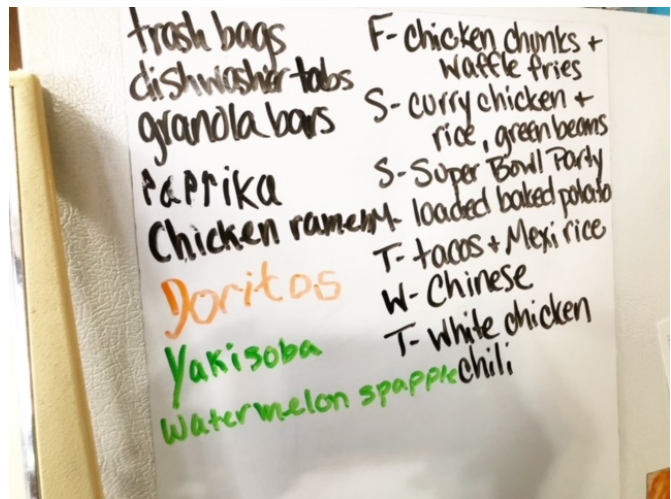 trash bags
dishwasher tabs
granola bars
PAPrika
Chicken ramen
Doritos
Yakisoba
Watermelon spapple
F- chicken chunks +
waffle fries
S- curry chicken +
rice, green beans
S- Super Bowl Party
M- loaded baked potato
T- tacos + Mexi rice
W- Chinese
T- white chicken
chili